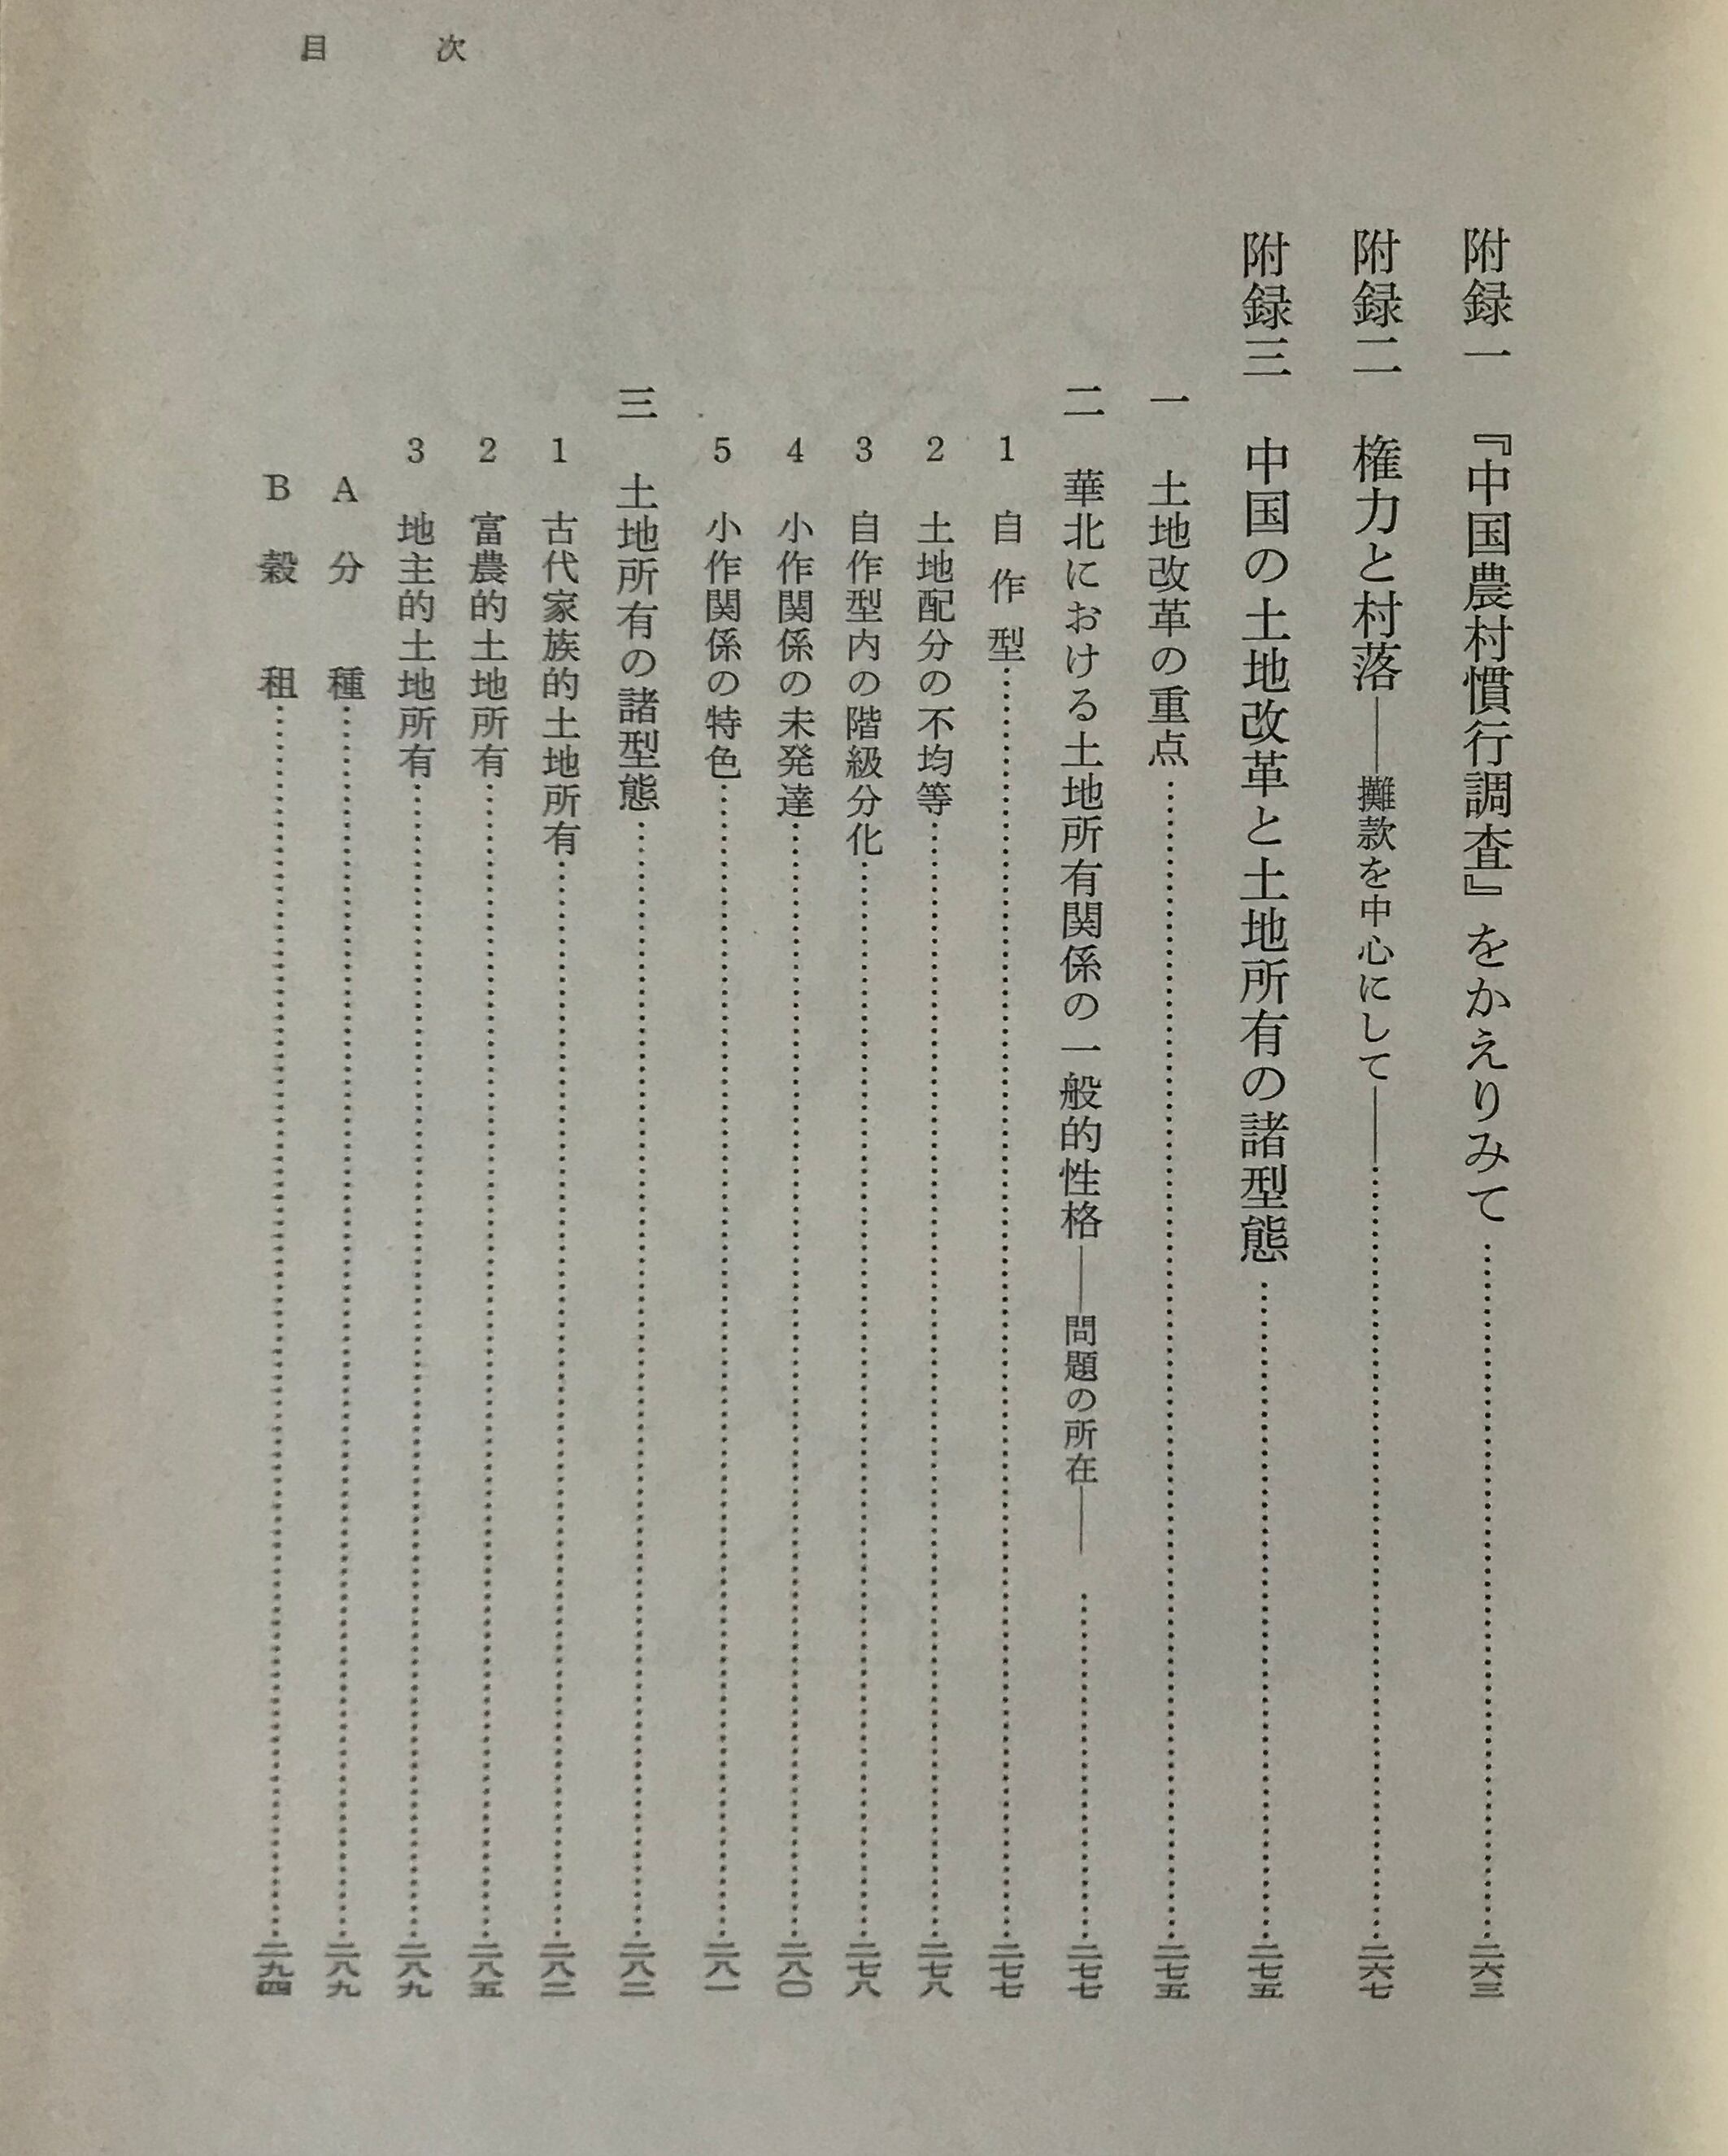 目次
附録一 『中国農村慣行調査』をかえりみて……二六三
附録二 権力と村落――攤款を中心にして――……二六七
附録三 中国の土地改革と土地所有の諸型態……二七五
一 土地改革の重点……二七五
二 華北における土地所有関係の一般的性格――問題の所在――……二七七
1 自作型……二七七
2 土地配分の不均等……二七八
3 自作型内の階級分化……二七八
4 小作関係の未発達……二八〇
5 小作関係の特色……二八一
三 土地所有の諸型態……二八二
1 古代家族的土地所有……二八二
2 富農的土地所有……二八五
3 地主的土地所有……二八九
A 分種……二八九
B 穀租……二九四